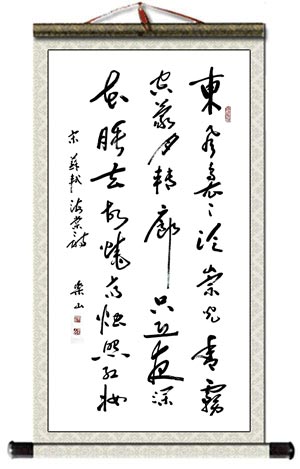 東風裊々泛崇光香霧
空蒙月轉廊只恐夜深
花睡去故燒高燭照紅妝
宋蘇軾海棠詩 樂山